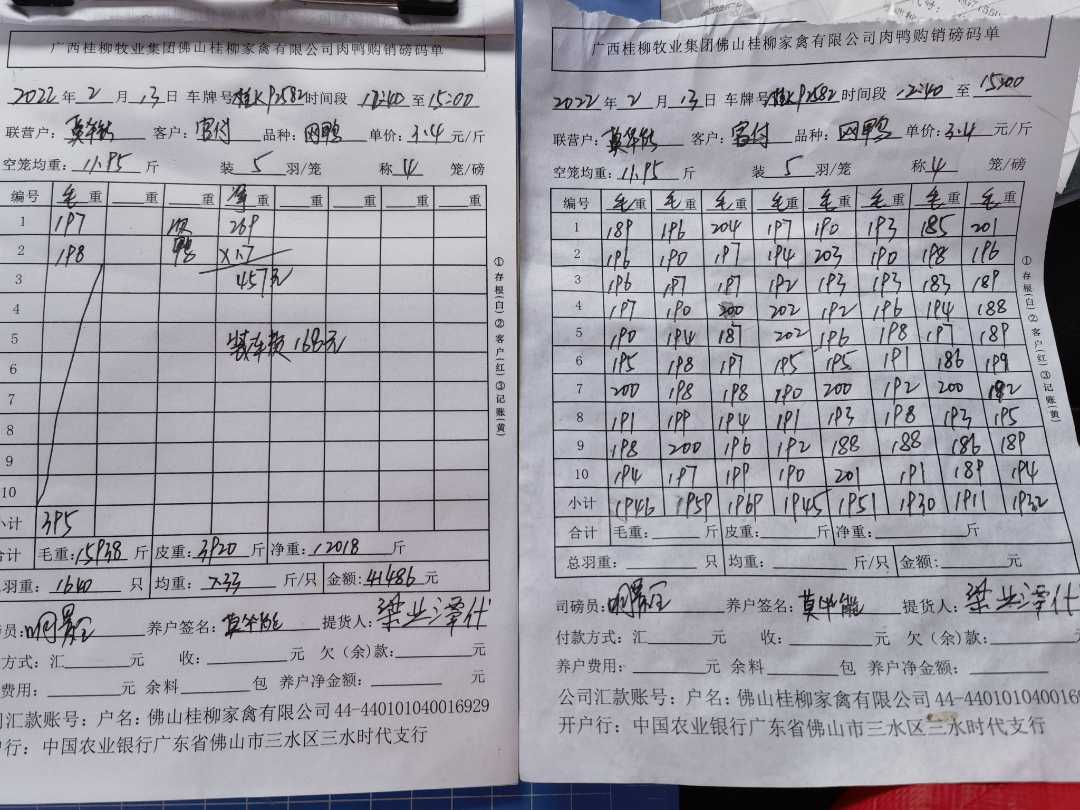 广西桂柳牧业集团佛山桂柳家禽有限公司肉鸭购销磅码单
2022年2月13日 车牌号 桂KP2582 时间段 12:40 至 15:00
联营户: 客户:富付 品种:网鸭 单价:3.4元/斤
空笼均重:11.95斤 装5羽/笼 称4笼/磅
编号 毛重 重 重 净重 重 重 重 重
1 197 次 269
2 198 鸭 x1.7
3 457元
4
5 装车费168元
6
7
8
9
10
小计 395
合计 毛重:15938斤 皮重:3920斤 净重:12018斤
总羽重:1640只 均重:7.33斤/只 金额:41486元
磅员: 养户签名: 提货人:梁业泽什
方式:汇 元 收: 元 欠(余)款: 元
费用: 元 余料 包 养户净金额: 元
司汇款账号:户名:佛山桂柳家禽有限公司44-440101040016929
户行:中国农业银行广东省佛山市三水区三水时代支行
①存根(白)②客户(红)③记账(黄)
广西桂柳牧业集团佛山桂柳家禽有限公司肉鸭购销磅码单
2022年2月13日 车牌号 桂KP2582 时间段 12:40 至 15:00
联营户: 客户:富付 品种:网鸭 单价:3.4元/斤
空笼均重:11.95斤 装5羽/笼 称4笼/磅
编号 毛重 毛重 毛重 毛重 毛重 毛重 毛重 毛重
1 189 196 204 197 190 193 185 201
2 196 190 197 194 203 190 198 196
3 196 197 197 192 193 193 183 189
4 197 190 200 202 192 196 194 188
5 190 194 187 202 196 198 197 189
6 195 198 197 195 195 191 186 199
7 200 198 198 190 200 192 200 192
8 191 199 194 191 193 198 193 195
9 198 200 196 192 188 188 186 189
10 194 197 199 190 201 191 189 194
小计 1946 1959 1969 1945 1951 1930 1911 1932
合计 毛重: 斤 皮重: 斤 净重: 斤
总羽重: 只 均重: 斤/只 金额: 元
司磅员: 养户签名: 提货人:梁业泽什
付款方式:汇 元 收: 元 欠(余)款: 元
养户费用: 元 余料 包 养户净金额: 元
公司汇款账号:户名:佛山桂柳家禽有限公司44-4401010400169
开户行:中国农业银行广东省佛山市三水区三水时代支行
①存根(白)②客户(红)③记账(黄)